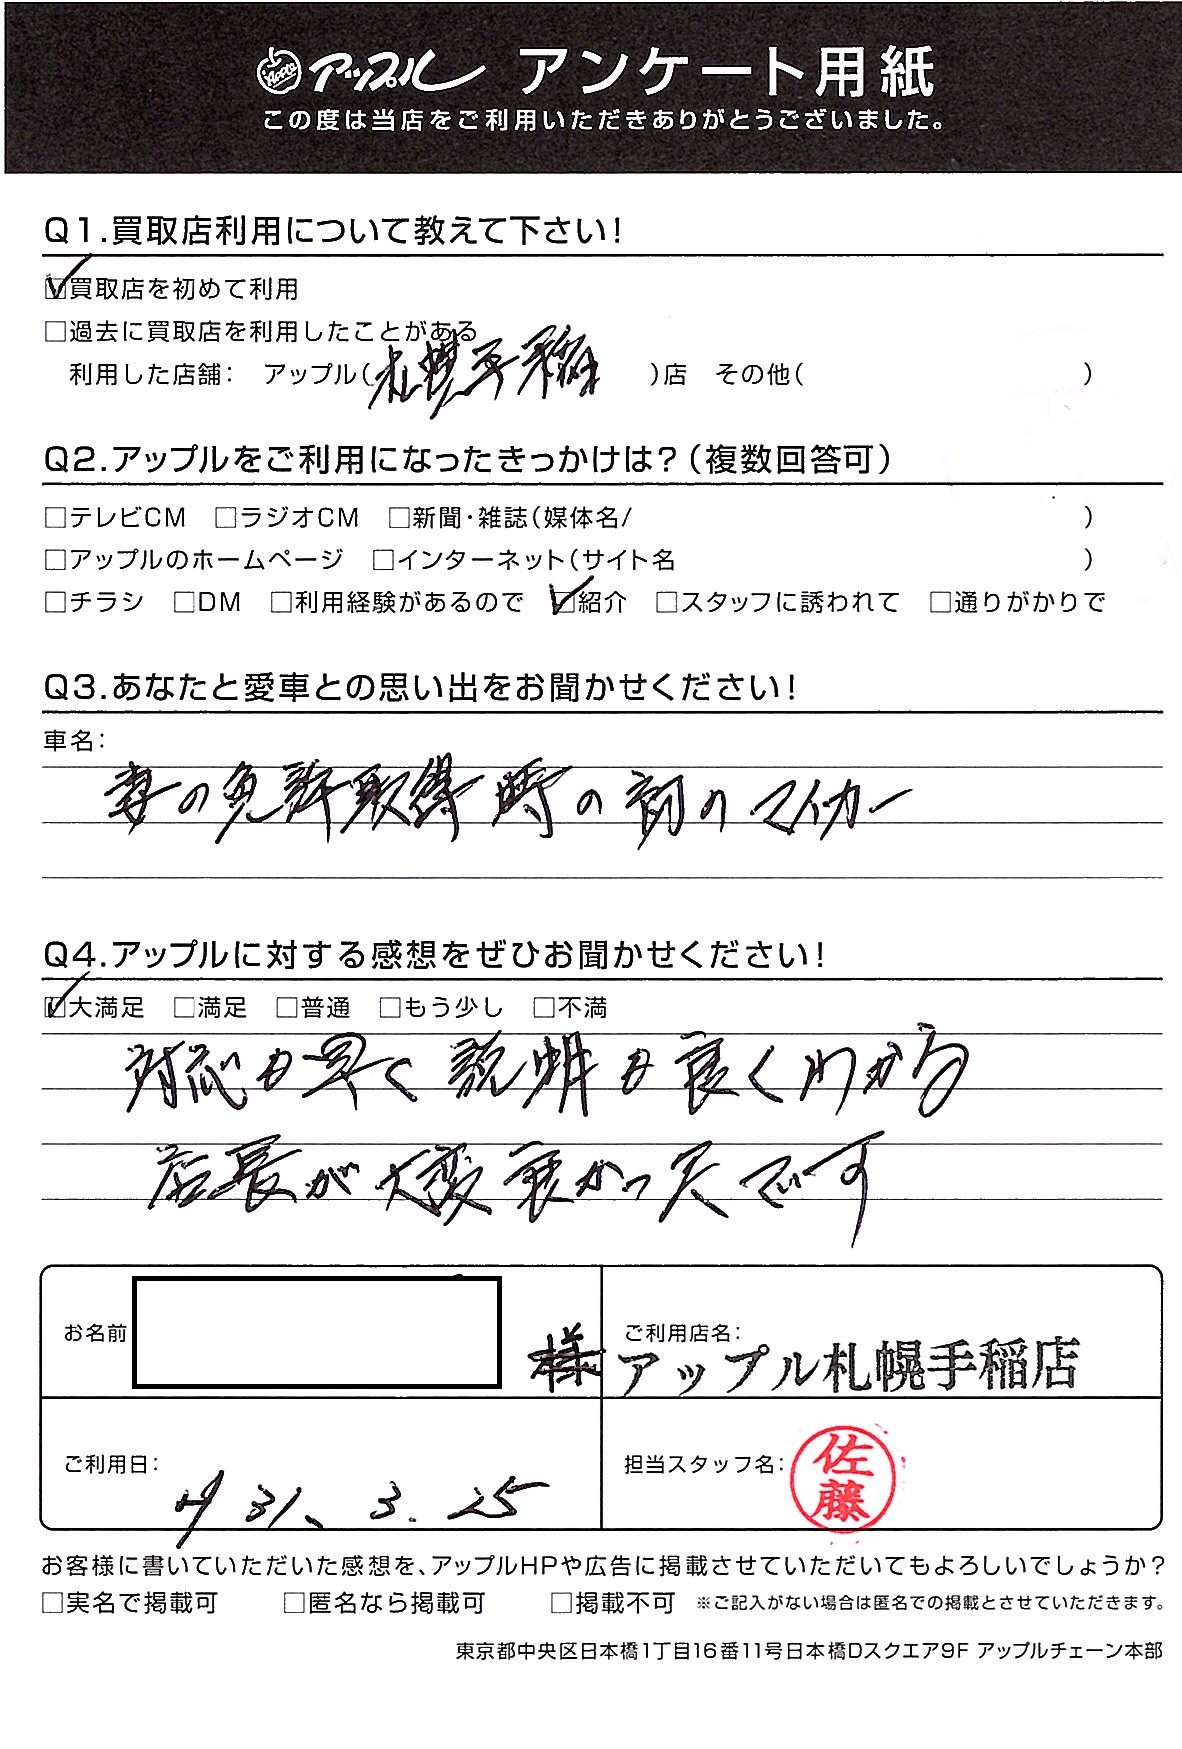 Apple アップル アンケート用紙
この度は当店をご利用いただきありがとうございました。
Q1.買取店利用について教えて下さい!
☑買取店を初めて利用
□過去に買取店を利用したことがある
利用した店舗: アップル(札幌手稲)店 その他( )
Q2.アップルをご利用になったきっかけは?(複数回答可)
□テレビCM □ラジオCM □新聞・雑誌(媒体名/ )
□アップルのホームページ □インターネット(サイト名 )
□チラシ □DM □利用経験があるので ☑紹介 □スタッフに誘われて □通りがかりで
Q3.あなたと愛車との思い出をお聞かせください!
車名:
妻の免許取得時の初のマイカー
Q4.アップルに対する感想をぜひお聞かせください!
☑大満足 □満足 □普通 □もう少し □不満
対応も早く説明も良くわかる
店長が大変良かったです
お名前 様 ご利用店名:
アップル札幌手稲店
ご利用日: H31、3.25 担当スタッフ名: 佐藤
お客様に書いていただいた感想を、アップルHPや広告に掲載させていただいてもよろしいでしょうか?
□実名で掲載可 □匿名なら掲載可 □掲載不可 ※ご記入がない場合は匿名での掲載とさせていただきます。
東京都中央区日本橋1丁目16番11号日本橋Dスクエア9F アップルチェーン本部